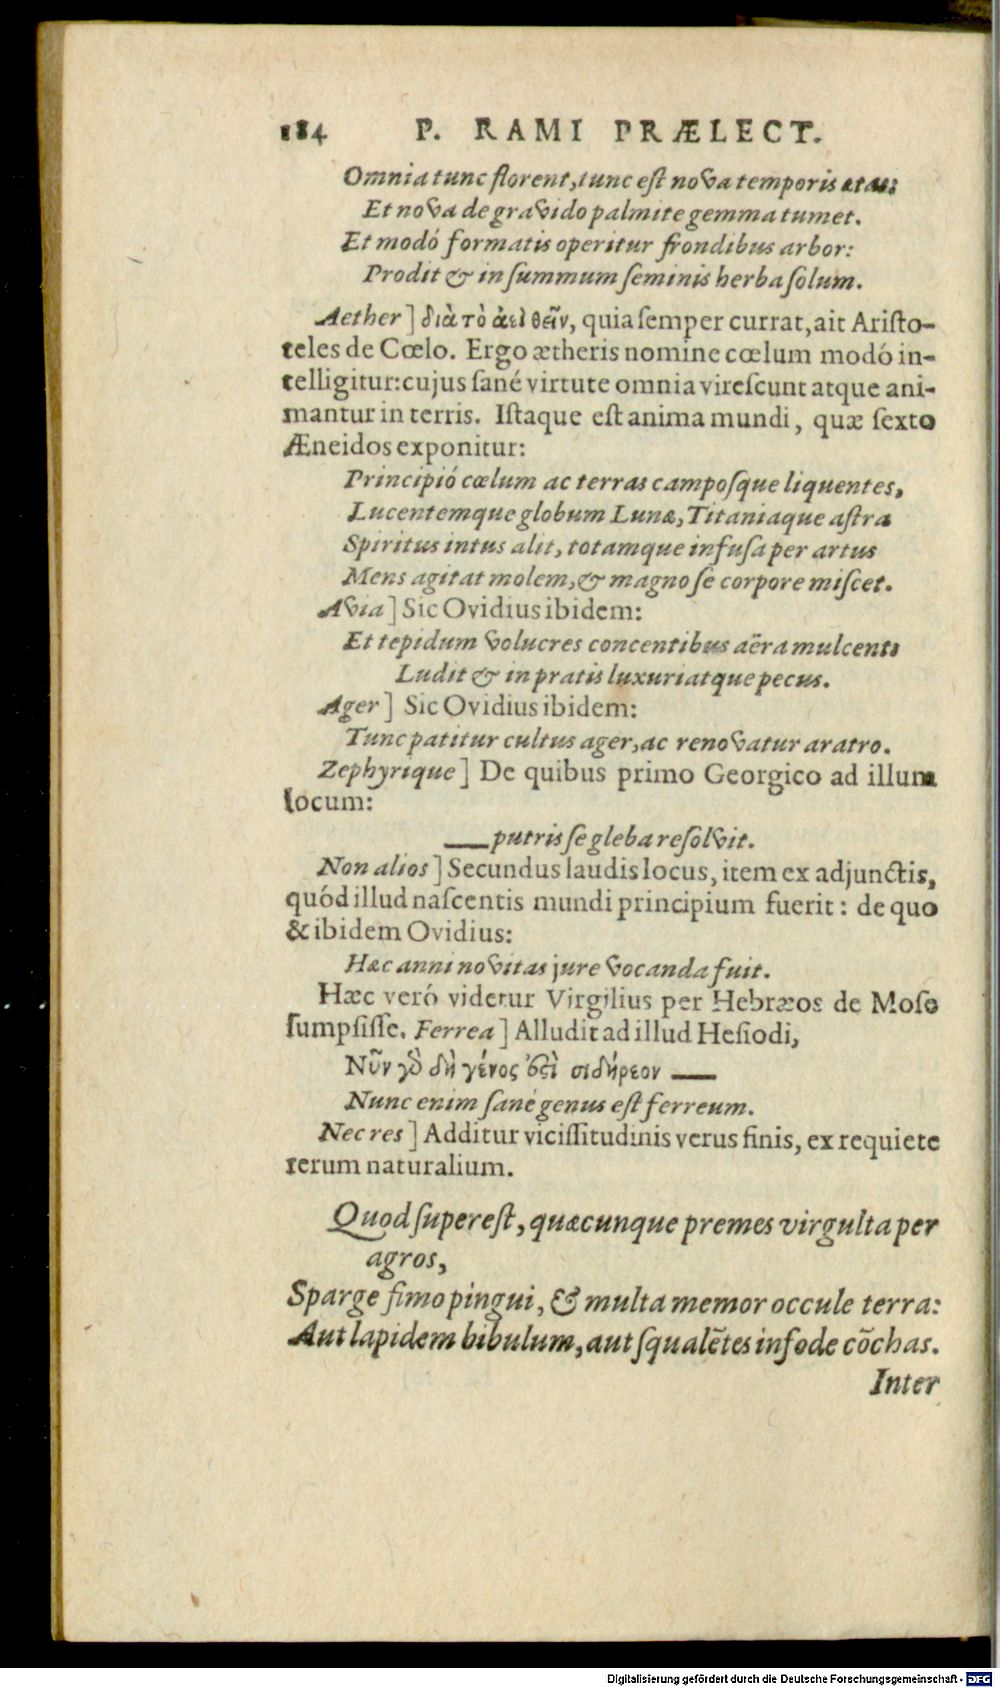 184 P. RAMI PRÆLECT.
Omnia tunc florent, tunc est nova temporis ætas:
Et nova de gravido palmite gemma tumet.
Et modó formatis operitur frondibus arbor:
Prodit & in summum seminis herba solum.
Aether] διὰ τὸ ἀεὶ θεῖν, quia semper currat, ait Aristo-
teles de Cœlo. Ergo ætheris nomine cœlum modó in-
telligitur: cujus sané virtute omnia virescunt atque ani-
mantur in terris. Istaque est anima mundi, quæ sexto
Æneidos exponitur:
Principió cœlum ac terras camposque liquentes,
Lucentemque globum Lunæ, Titaniaque astra
Spiritus intus alit, totamque infusa per artus
Mens agitat molem, & magno se corpore miscet.
Avia] Sic Ovidius ibidem:
Et tepidum volucres concentibus aëra mulcent:
Ludit & in pratis luxuriatque pecus.
Ager] Sic Ovidius ibidem:
Tunc patitur cultus ager, ac renovatur aratro.
Zephyrique] De quibus primo Georgico ad illum
locum:
—putris se gleba resolvit.
Non alios] Secundus laudis locus, item ex adjunctis,
quód illud nascentis mundi principium fuerit: de quo
& ibidem Ovidius:
Hæc anni novitas jure vocanda fuit.
Hæc veró videtur Virgilius per Hebræos de Mose
sumpsisse. Ferrea] Alludit ad illud Hesiodi,
Νῦν γὸ δὴ γένος ἐστὶ σιδήρεον —
Nunc enim sané genus est ferreum.
Nec res] Additur vicissitudinis verus finis, ex requiete
rerum naturalium.
Quod superest, quæcunque premes virgulta per
agros,
Sparge fimo pingui, & multa memor occule terra:
Aut lapidem bibulum, aut squalẽtes infode cõchas.
Inter
Digitalisierung gefördert durch die Deutsche Forschungsgemeinschaft - DFG